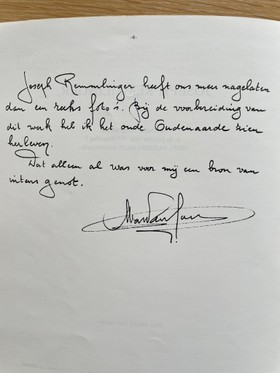 -4-
Joseph Remmlinger heeft ons meer nagelaten
dan een reeks foto's. Bij de voorbereiding van
dit werk heb ik het oude Oudenaarde zien
herleven.
Dat alleen al was voor mij een bron van
intens genot.